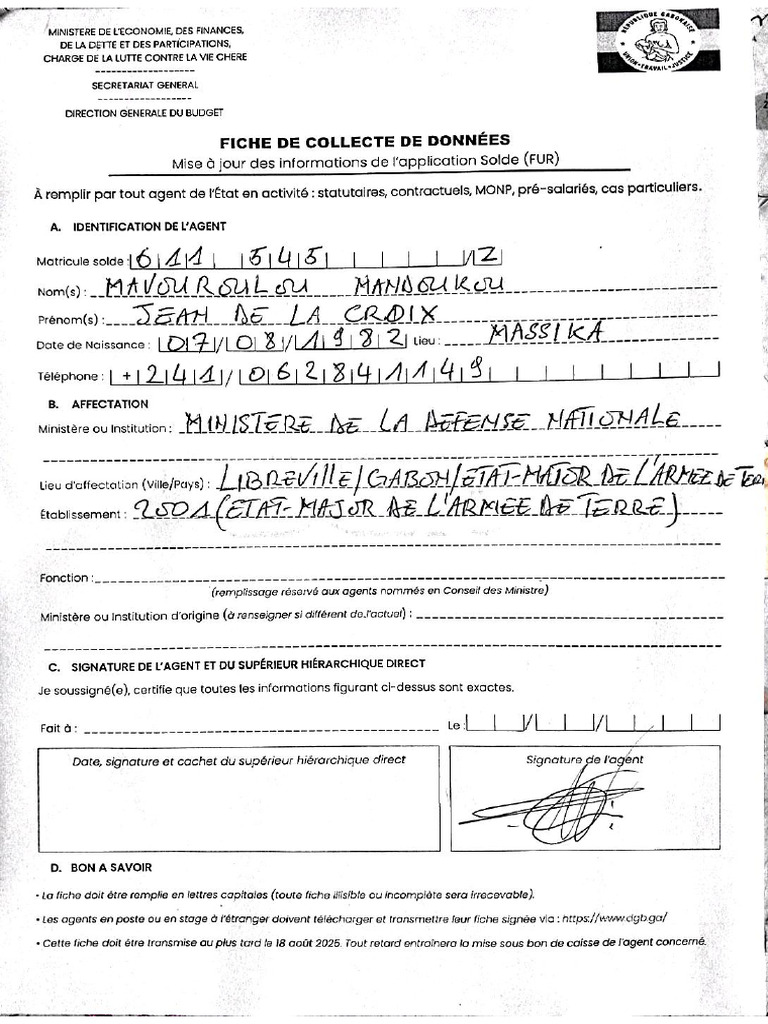 MINISTERE DE L'ECONOMIE, DES FINANCES,
DE LA DETTE ET DES PARTICIPATIONS,
CHARGE DE LA LUTTE CONTRE LA VIE CHERE
--------------------
SECRETARIAT GENERAL
--------------------
DIRECTION GENERALE DU BUDGET
REPUBLIQUE GABONAISE
UNION-TRAVAIL-JUSTICE
FICHE DE COLLECTE DE DONNÉES
Mise à jour des informations de l'application Solde (FUR)
À remplir par tout agent de l'État en activité : statutaires, contractuels, MONP, pré-salariés, cas particuliers.
A. IDENTIFICATION DE L'AGENT
Matricule solde : 611 545 /Z
Nom(s) : MAVOUROULOU MANDOUKOU
Prénom(s) : JEAN DE LA CROIX
Date de Naissance : 07/08/1982 Lieu : MASSIKA
Téléphone : +241/062841149
B. AFFECTATION
Ministère ou Institution : MINISTERE DE LA DEFENSE NATIONALE
Lieu d'affectation (Ville/Pays) : LIBREVILLE/GABON/ETAT-MAJOR DE L'ARMEE DE TERR
Établissement : 2501 (ETAT-MAJOR DE L'ARMEE DE TERRE)
Fonction :
(remplissage réservé aux agents nommés en Conseil des Ministre)
Ministère ou Institution d'origine (à renseigner si différent de l'actuel) :
C. SIGNATURE DE L'AGENT ET DU SUPÉRIEUR HIÉRARCHIQUE DIRECT
Je soussigné(e), certifie que toutes les informations figurant ci-dessus sont exactes.
Fait à : Le : / /
Date, signature et cachet du supérieur hiérarchique direct
Signature de l'agent
D. BON A SAVOIR
• La fiche doit être remplie en lettres capitales (toute fiche illisible ou incomplète sera irrecevable).
• Les agents en poste ou en stage à l'étranger doivent télécharger et transmettre leur fiche signée via : https://www.dgb.ga/
• Cette fiche doit être transmise au plus tard le 18 août 2025. Tout retard entraînera la mise sous bon de caisse de l'agent concerné.